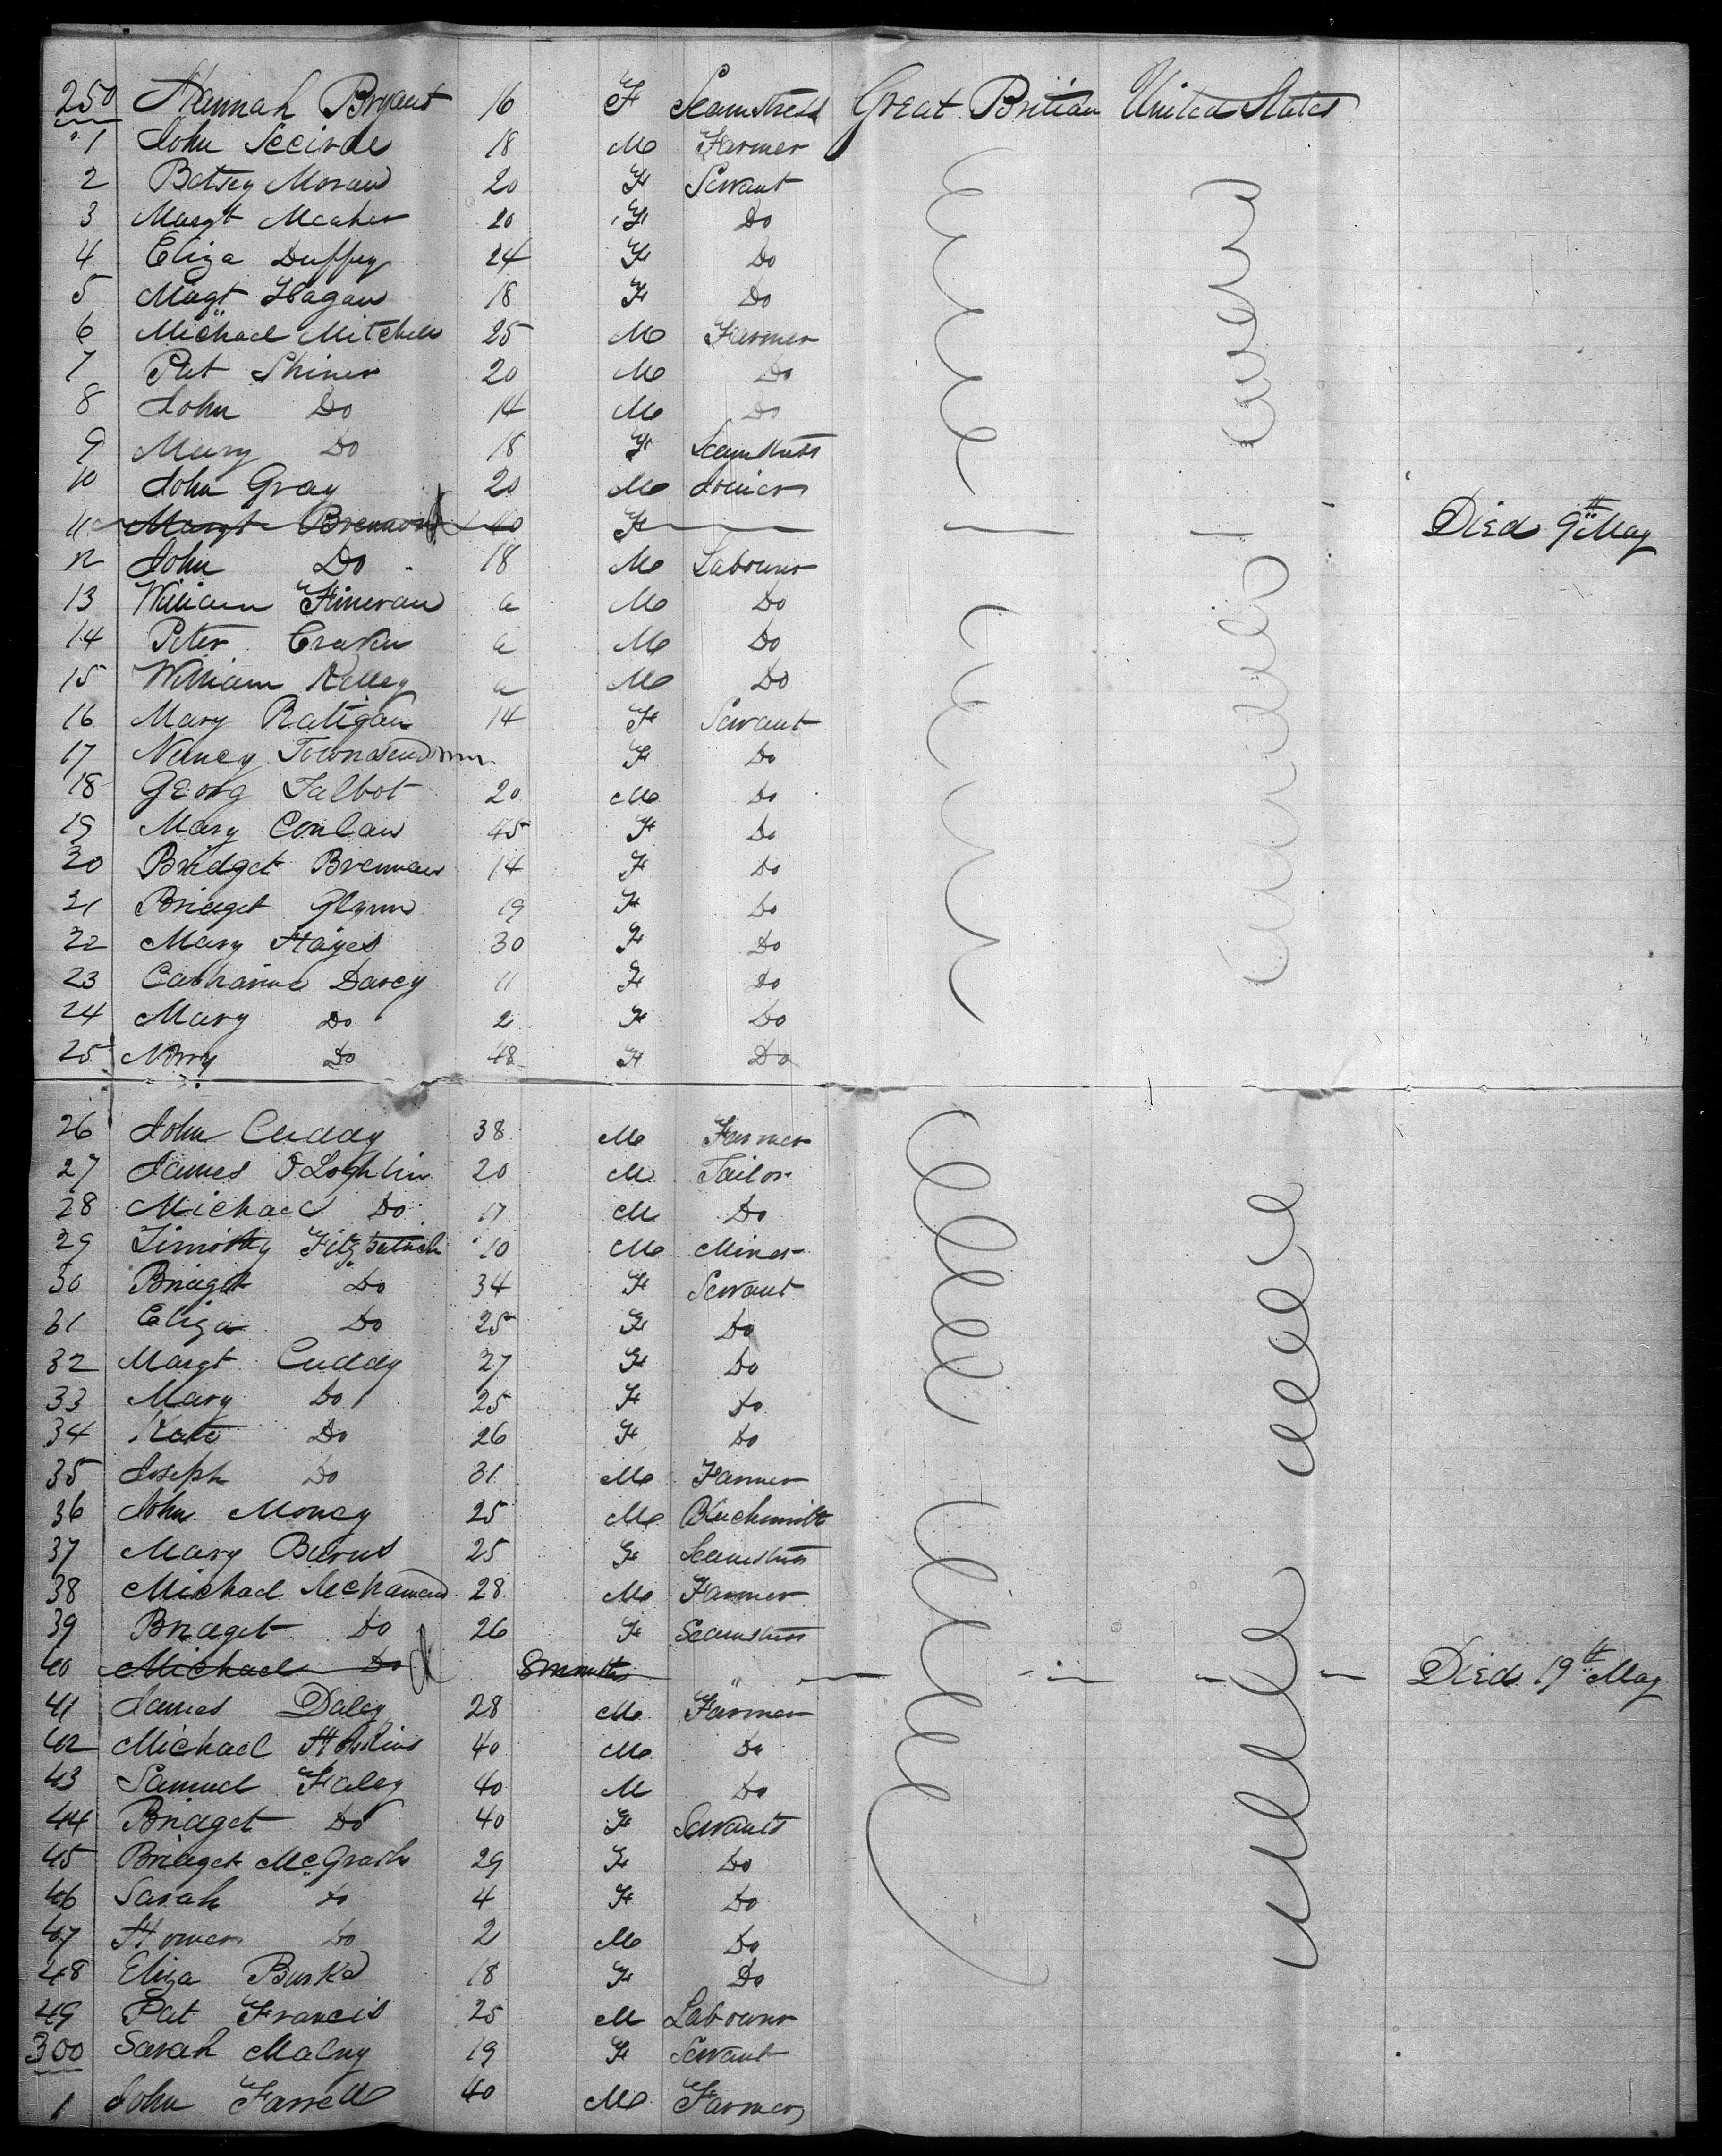 250 Hannah Bryant 16 F Seamstress Great Britian United States
1 John 18 M Farmer
2 Betsey Moran 20 F Servant
3 Margt Meaher 20 F Do
4 Eliza Duffey 24 F Do
5 Magt Hagan 18 F Do
6 Michael Mitchell 25 M Farmer
7 Pat Shiner 20 M Do
8 John Do 14 M Do
9 Mary Do 18 F Seamstress
10 John Gray 20 M Joiner
11 Margt Brennan 40 F Died 9th May
12 John Do 18 M Labourer
13 William Fineran a M Do
14 Peter a M Do
15 William Kelley a M Do
16 Mary Ratigan 14 F Servant
17 Nancy Townsend F Do
18 Georg Talbot 20 M Do
19 Mary Conlan 45 F Do
20 Bridget Brennan 14 F Do
21 Bridget Glynn 19 F Do
22 Mary Hayes 30 F Do
23 Catharine Darcy 11 F Do
24 Mary Do 2 F Do
25 Do 48 F Do
26 John Cuddy 38 M Farmer
27 James O'Loghlin 20 M Tailor
28 Michael Do 17 M Do
29 Timothy Fitzpatrick 10 M Miner
30 Bridget Do 34 F Servant
31 Eliza Do 25 F Do
32 Margt Cuddy 27 F Do
33 Mary Do 25 F Do
34 Kate Do 26 F Do
35 Joseph Do 31 M Farmer
36 John Money 25 M Blackmsith
37 Mary Burns 25 F Seamstress
38 Michael McNamara 28 M Farmer
39 Bridget Do 26 F Seamstress
40 Michael Do 8 months Died 19th May
41 James Daley 28 M Farmer
42 Michael Hopkins 40 M Do
43 Samuel Faley 40 M Do
44 Bridget Do 40 F Servants
45 Bridget McGrath 29 F Do
46 Sarah Do 4 F Do
47 Do 2 M Do
48 Eliza Burke 18 F Do
49 Pat Francis 25 M Labourer
300 Sarah Malny 19 F Servant
1 John Farrell 40 M Farmer